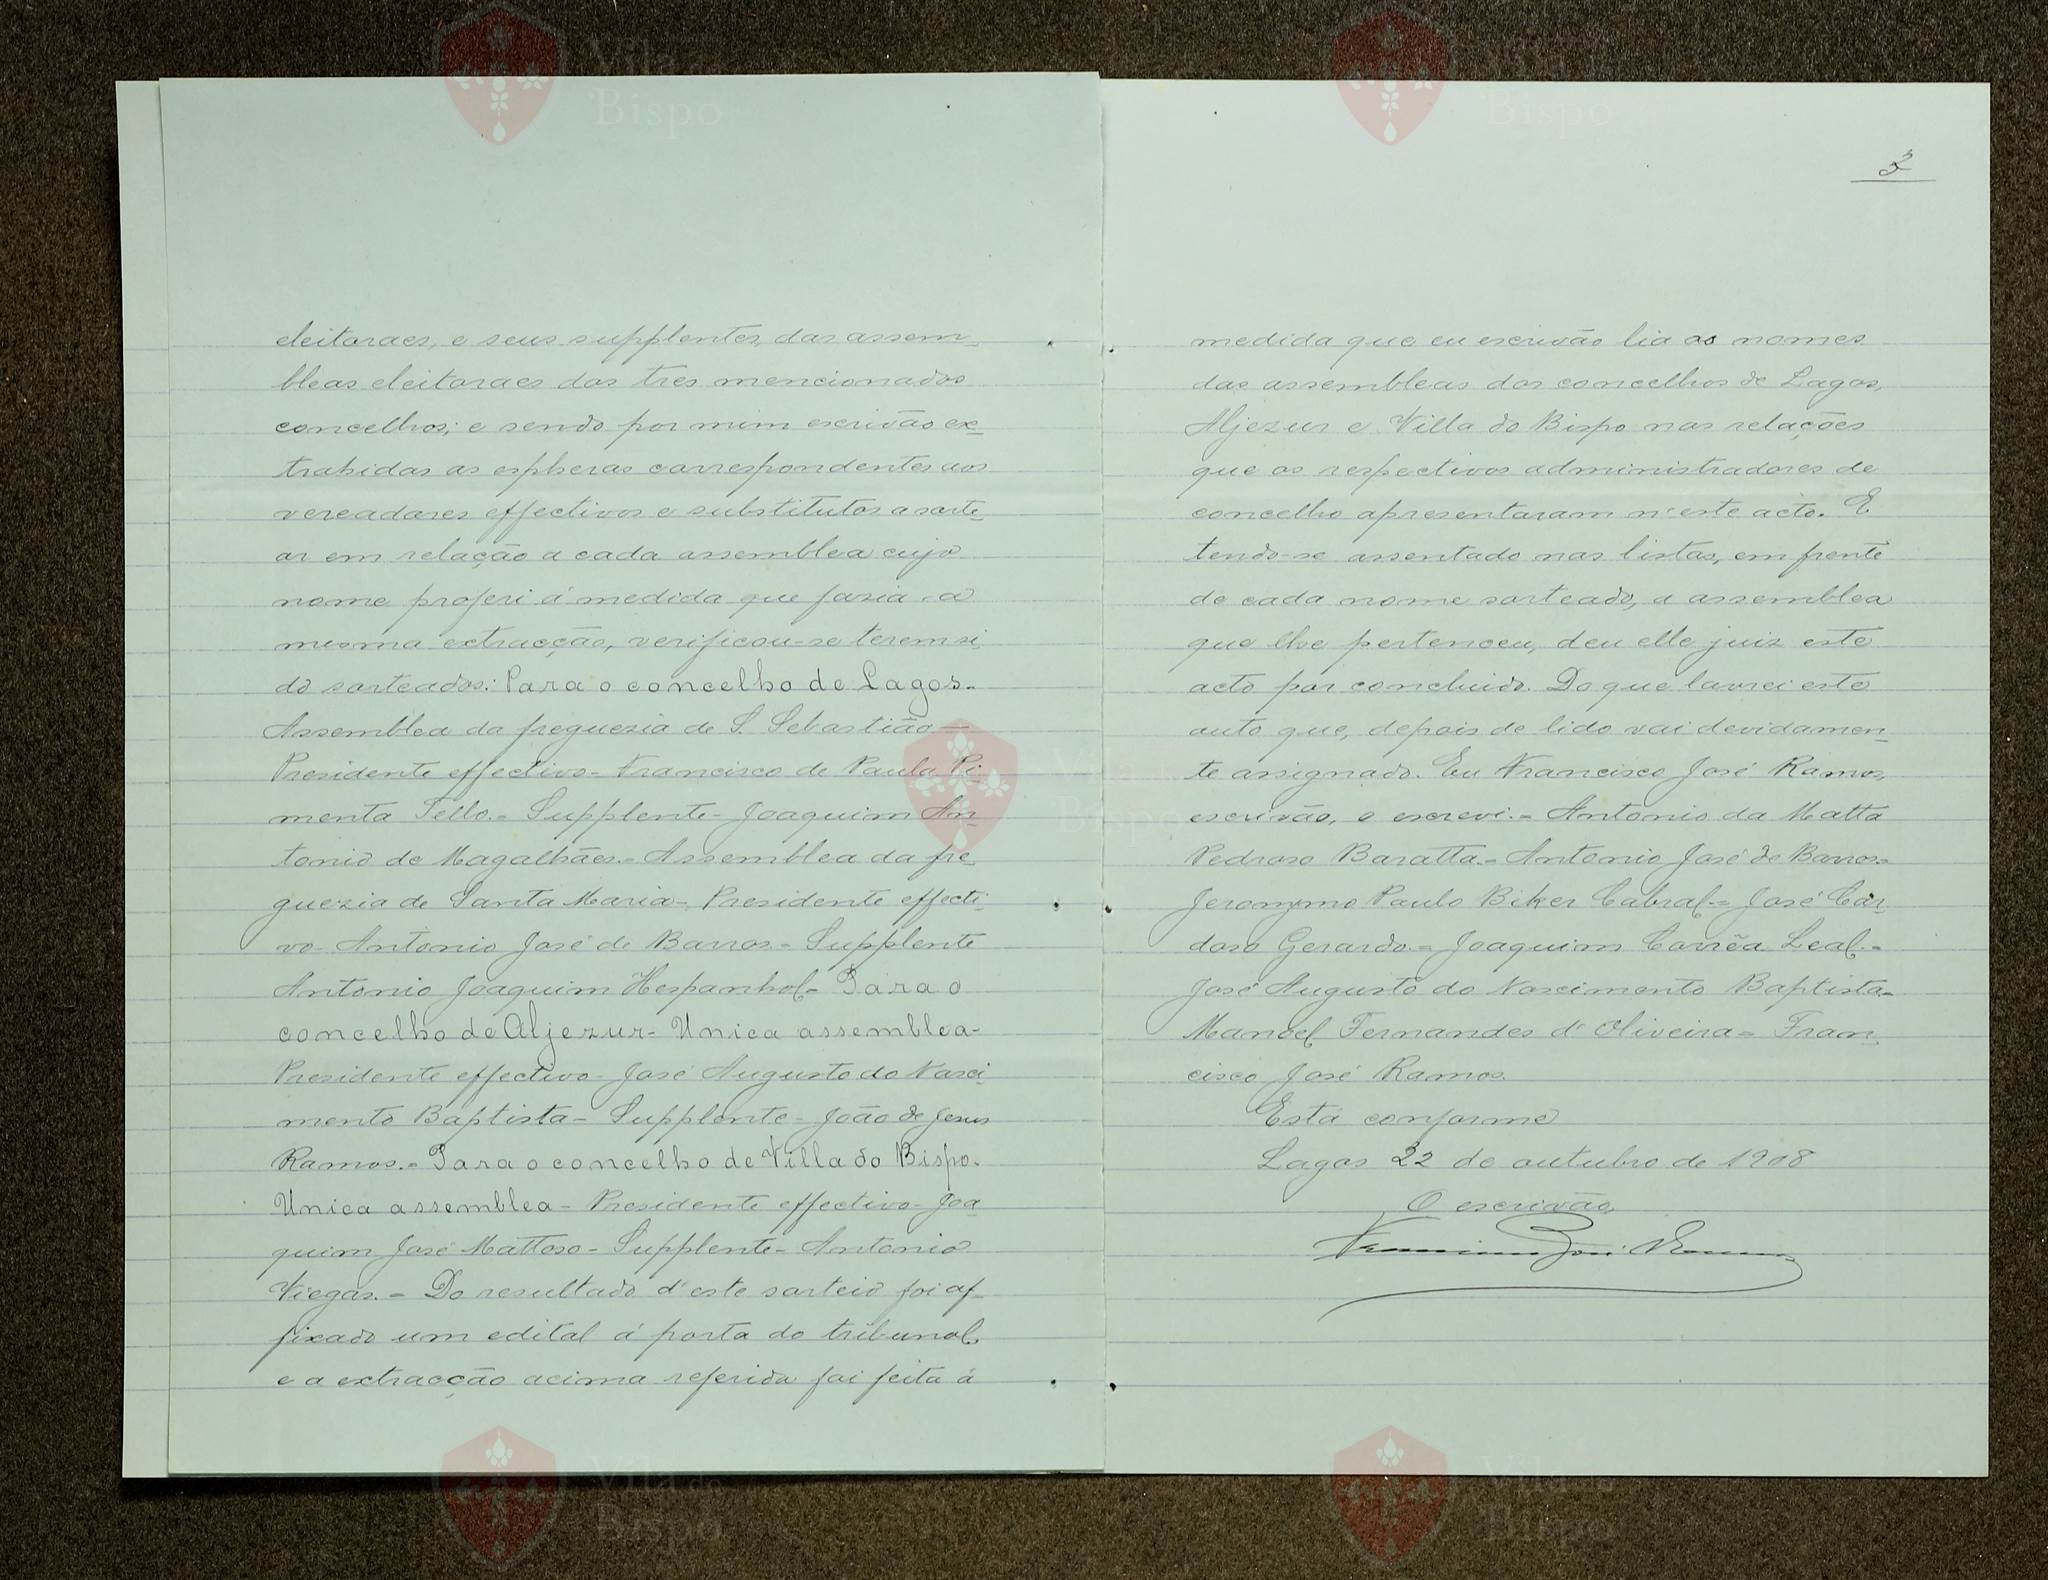 eleitoraes, e seus supplentes, das assem-
bleas eleitoraes dos tres mencionados
concelhos; e sendo por mim escrivão ex-
trahidas as espheras correspondentes aos
vereadores effectivos e substitutos a sorte-
ar em relação a cada assemblea cujo
nome proferi á medida que fazia a
mesma extracção, verificou-se terem si-
do sorteados: Para o concelho de Lagos.-
Assemblea da freguezia de S. Sebastião-
Presidente effectivo- Francisco de Paula Pi-
menta Tello.- Supplente- Joaquim An-
tonio de Magalhães.- Assemblea da fre-
guezia de Santa Maria- Presidente effecti-
vo- Antonio José de Barros- Supplente
Antonio Joaquim Hespanhol- Para o
concelho de Aljezur- Unica assemblea-
Presidente effectivo- José Augusto do Nasci-
mento Baptista- Supplente- João de Jesus
Ramos.- Para o concelho de Villa do Bispo.
Unica assemblea- Presidente effectivo- Joa-
quim José Mattoso- Supplente- Antonio
Viegas.- Do resultado d'este sorteio foi af-
fixado um edital á porta do tribunal
e a extracção acima referida foi feita á
3
medida que eu escrivão lia os nomes
das assembleas dos concelhos de Lagos,
Aljezur e Villa do Bispo nas relações
que os respectivos administradores de
concelho apresentaram n'este acto. E
tendo-se assentado nas listas, em frente
de cada nome sorteado, a assemblea
que lhe pertenceu, deu elle juiz este
acto por concluido. Do que lavrei este
auto que, depois de lido vai devidamen-
te assignado. Eu Francisco José Ramos,
escrivão, o escrevi.- Antonio da Matta
Pedroso Baratta.- Antonio José de Barros.-
Jeronymo Paulo Biker Cabral.- José Car-
doso Gerardo.- Joaquim Corrêa Leal.-
José Augusto do Nascimento Baptista-
Manoel Fernandes d'Oliveira- Fran-
cisco José Ramos.
Está conforme
Lagos 22 de outubro de 1908
O escrivão,
Francisco José Ramos
Vila do
Bispo